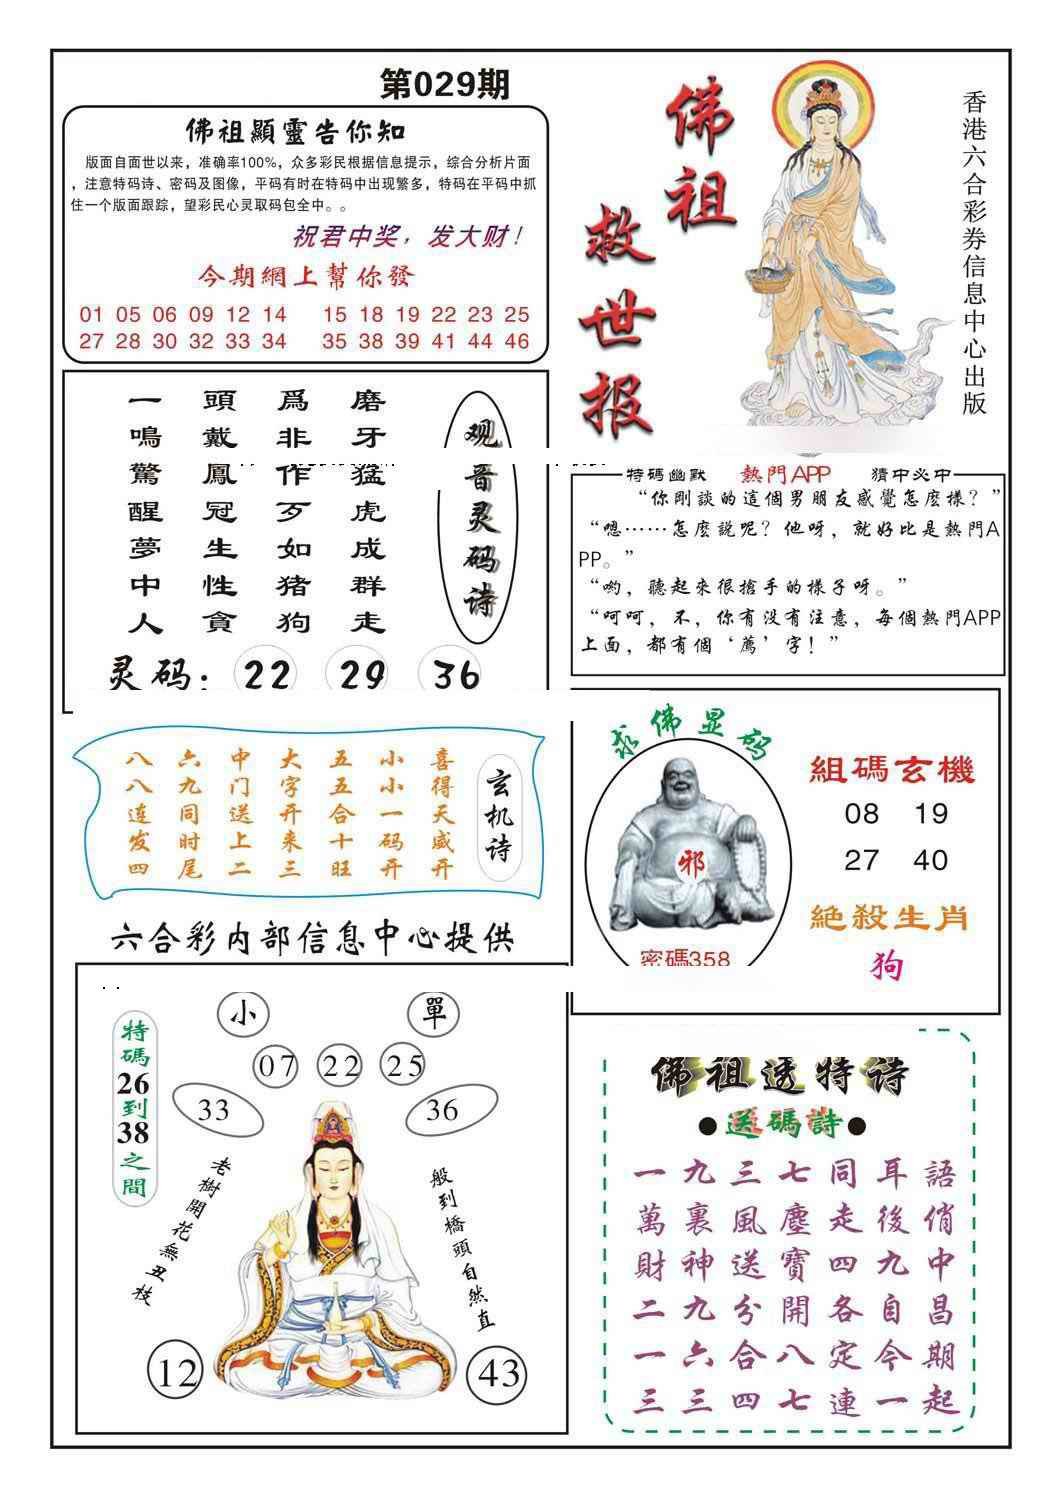 第029期
佛祖顯靈告你知
版面自面世以来，准确率100%，众多彩民根据信息提示，综合分析片面
，注意特码诗、密码及图像，平码有时在特码中出现繁多，特码在平码中抓
住一个版面跟踪，望彩民心灵取码包全中。。
祝君中奖，发大财！
今期網上幫你發
01 05 06 09 12 14 15 18 19 22 23 25
27 28 30 32 33 34 35 38 39 41 44 46
佛祖
救世报
香港六合彩券信息中心出版
磨牙猛虎成群走
爲非作歹如猪狗
頭戴鳳冠生性貪
一鳴驚醒夢中人
观音灵码诗
灵码：22 29 36
特碼幽默 熱門APP 猜中必中
“你剛談的這個男朋友感覺怎麼樣？”
“嗯……怎麼説呢？他呀，就好比是熱門A
PP。”
“喲，聽起來很搶手的樣子呀。”
“呵呵，不，你有没有注意，每個熱門APP
上面，都有個‘薦’字！”
玄机诗
喜得天威开
小小一码开
五五合十旺
大字开来三
中门送上二
六九同时尾
八八连发四
求佛显码
邪
密碼358
組碼玄機
08 19
27 40
絕殺生肖
狗
六合彩内部信息中心提供
小 單
07 22 25
33 36
特碼26到38之間
老樹開花無丑枝
般到橋頭自然直
12 43
佛祖透特诗
●送碼詩●
一九三七同耳語
萬裏風塵走後俏
財神送寶四九中
二九分開各自昌
一六合八定今期
三三四七連一起